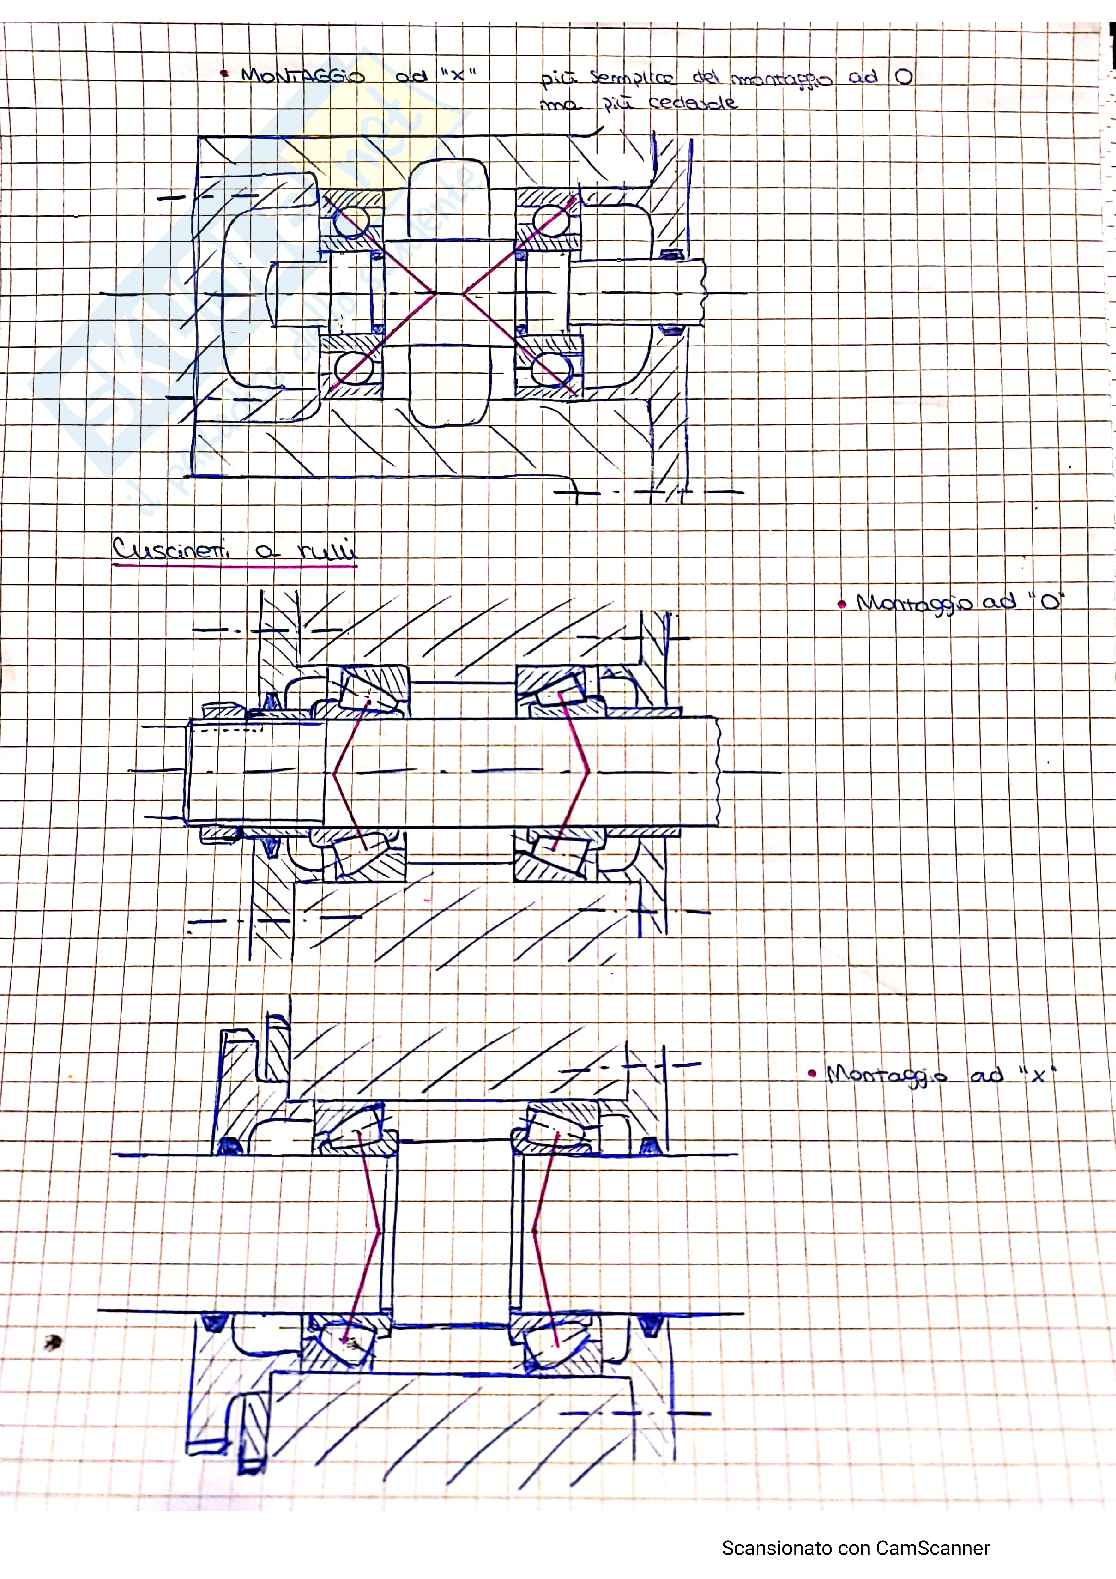 • MONTAGGIO ad "X" più semplice del montaggio ad O
ma più cedevole
Cuscinetti a rulli
• Montaggio ad "O"
• Montaggio ad "X"
Scansionato con CamScanner